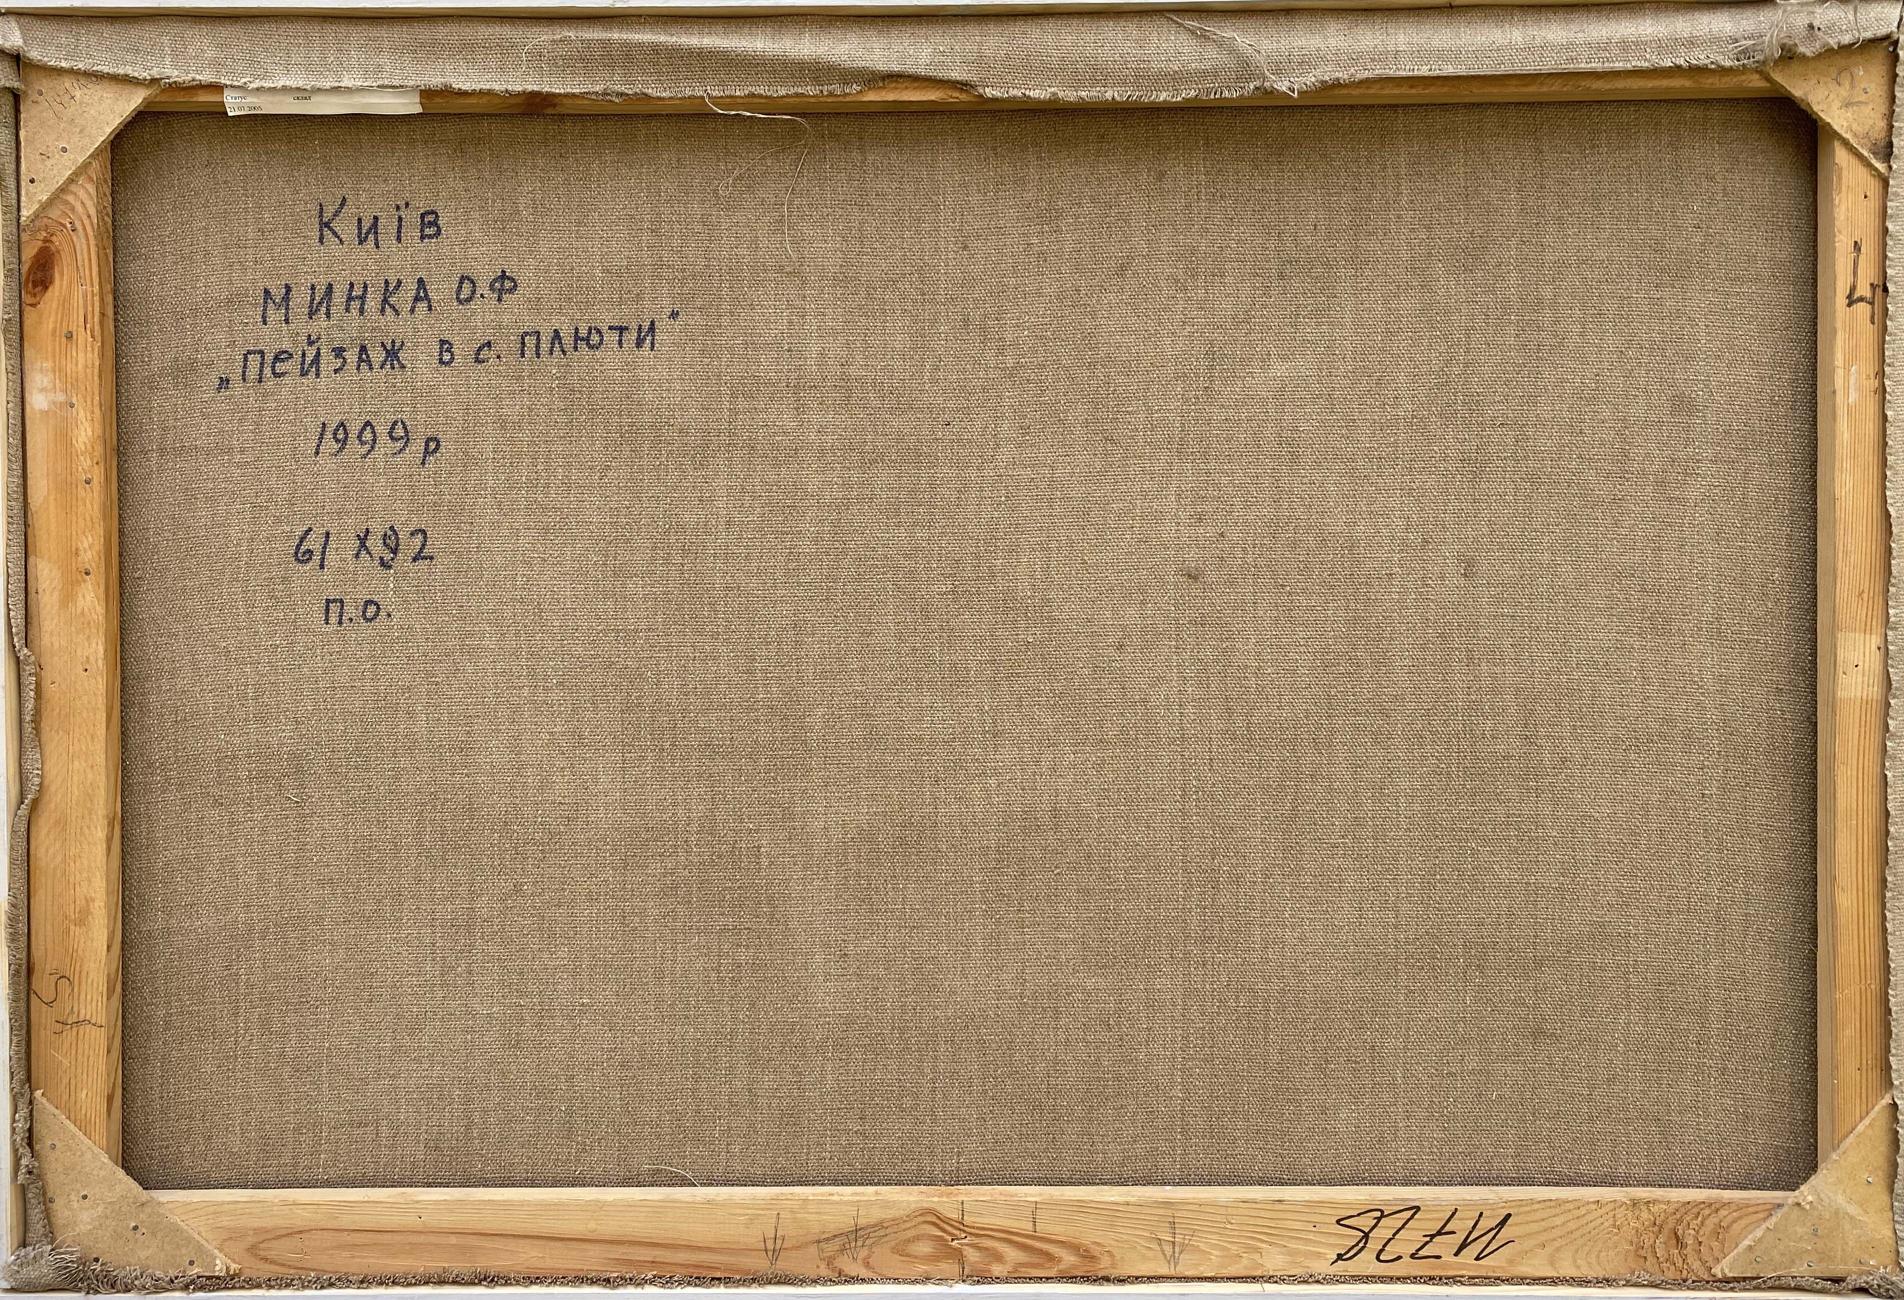 Статус склад
21.07.2005
2
Київ
МИНКА О.Ф
„ПЕЙЗАЖ В С. ПЛЮТИ"
1999р
61 х92
П.О.
4
М728